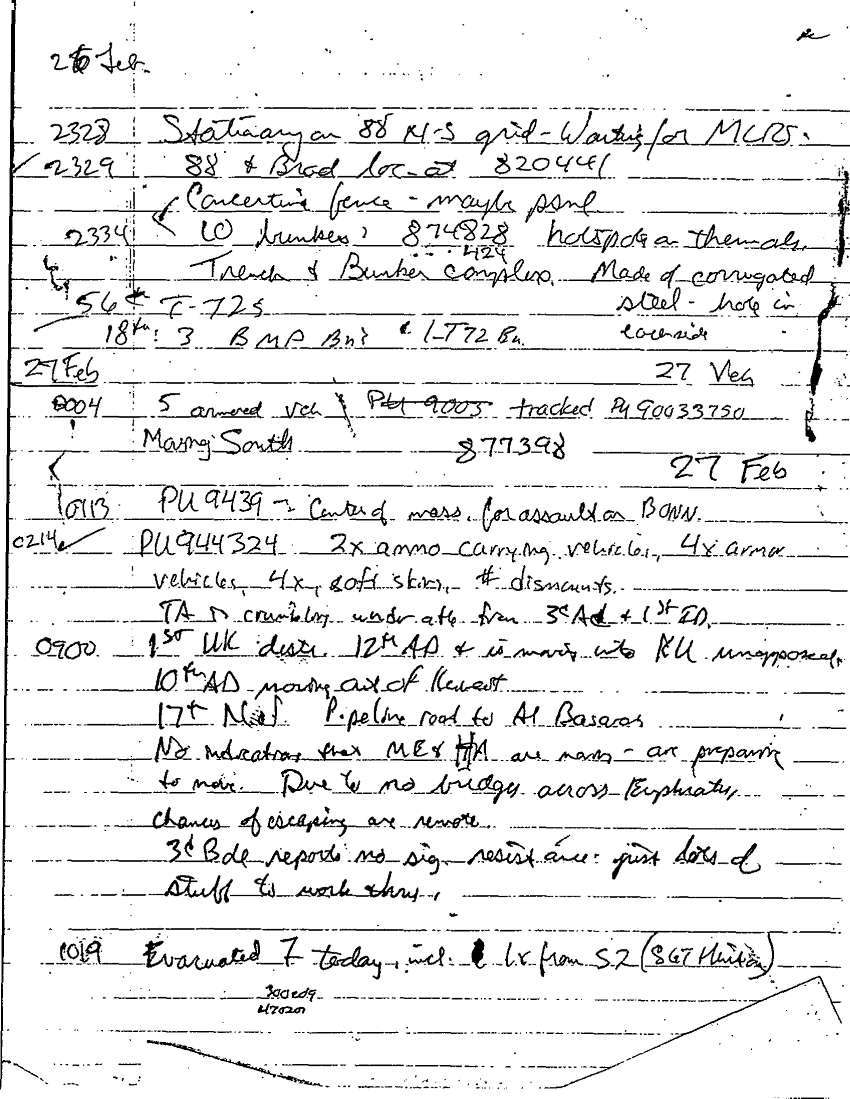 26 Feb.
2328 Stationary on 88 N-S grid - Waiting for MLRS.
2329 88 & Brad loc at 820441
Concertina fence - maybe psnl
2334 10 bunkers: 874828 hotspots on thermals.
... 424
Trench & Bunker complex. Made of corrugated
56 T-72s steel - hole in
18th: 3 BMP Bn's & 1-T72 Bn.
27 Feb 27 Veh
0004 5 armored veh PU 9005 tracked PU 90033750
Moving South 877398
27 Feb
0113 PU 9439 - Center of mass. for assault on BONN.
0214 PU944324 2x ammo carrying vehicles, 4x armor
vehicles, 4x, soft skins, # dismounts.
TA is crumbling under atk from 3d Ad & 1st ID.
0900 1st UK destr. 12th AD & is moving into KU unopposed.
10th AD moving out of Kuwait
17th Pipeline road to Al Basaras
No indications that ME & HA are moving - are preparing
to move. Due to no bridges across Euphrates,
chances of escaping are remote.
3d Bde reports no sig. resistance: just lots of
stuff to work thru.
1019 Evacuated 7 today, incl. 1x from S2 (SGT
300ed9
470201